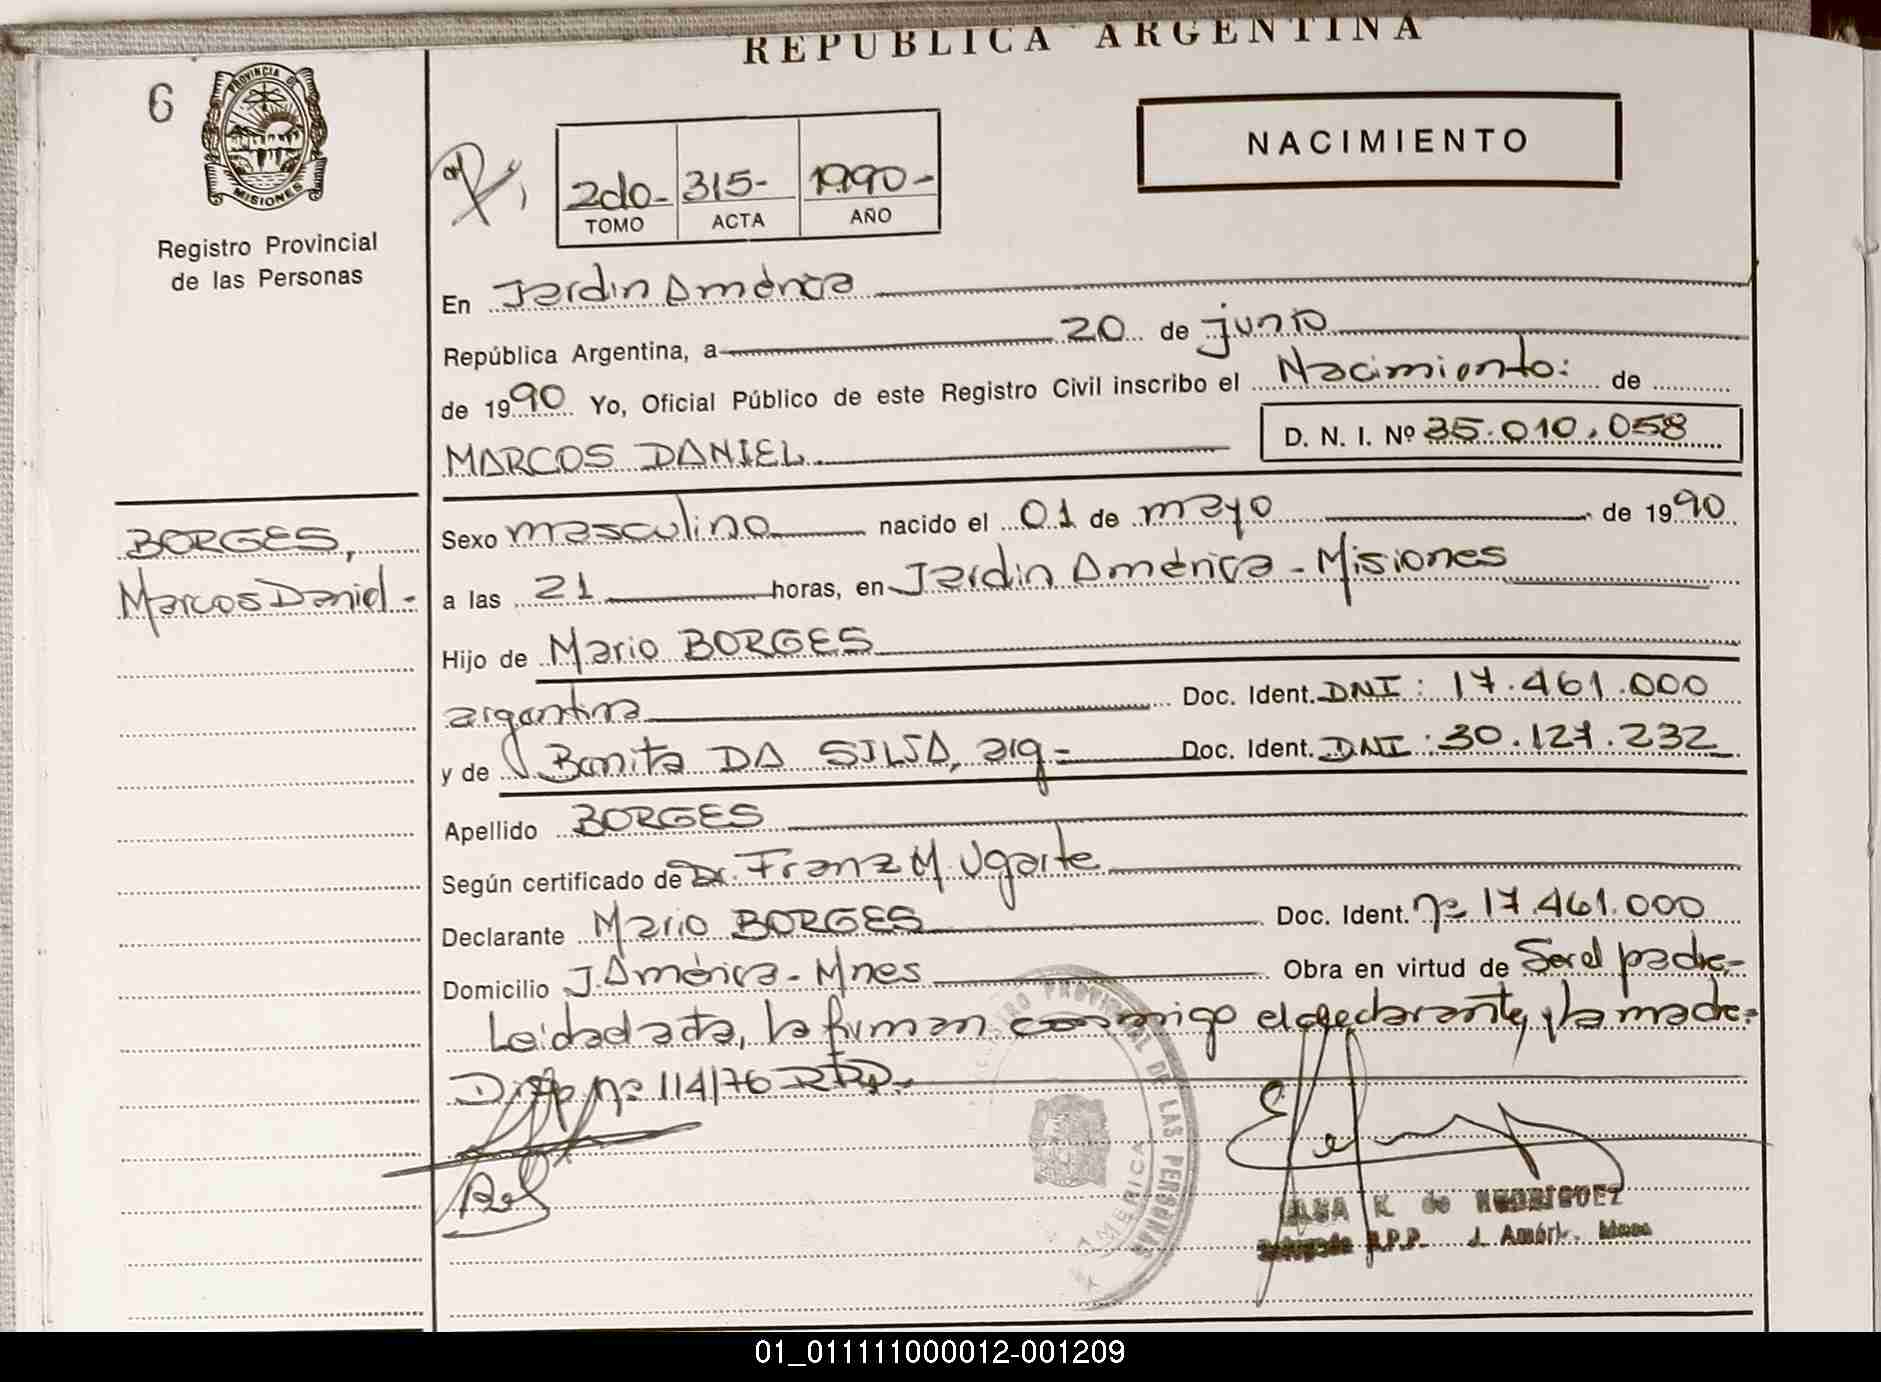 REPUBLICA ARGENTINA
6
PROVINCIA DE
MISIONES
Registro Provincial
de las Personas
NACIMIENTO
2do- 315- 1990-
TOMO ACTA AÑO
En Jardin América
República Argentina, a 20 de junio
de 1990 Yo, Oficial Público de este Registro Civil inscribo el Nacimiento: de
MARCOS DANIEL D. N. I. Nº 35.010.058
BORGES,
Marcos Daniel-
Sexo masculino nacido el 01 de mayo de 1990
a las 21 horas, en Jardin América - Misiones
Hijo de Mario BORGES
argentina Doc. Ident. DNI: 17.461.000
y de Benita DA SILVA, arg= Doc. Ident. DNI: 30.127.232
Apellido BORGES
Según certificado de Dr. Franz M. Ugarte
Declarante Mario BORGES Doc. Ident. nº 17.461.000
Domicilio J. América - Mnes Obra en virtud de Ser el padre,-
Leída el acta, la firman conmigo el declarante, y la madre=
Disp. nº 114/76 RPP.-
REGISTRO PROVINCIAL DE LAS PERSONAS
AMERICA
K. de RODRIGUEZ
Delegada R.P.P. J. Améric. Mnes
01_011111000012-001209